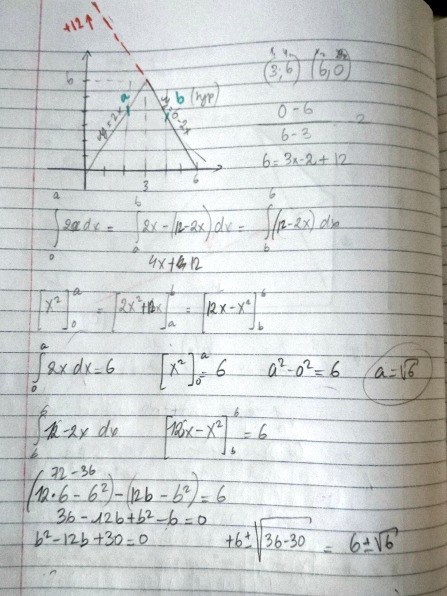 +12↑
6
a
b (hyp)
y = 2x
3
6
(3,6) (6,0)
0-6
6-3
-2
6 = 3x-2 + 12
∫₀ᵃ 2x dx = ∫ₐᵇ 2x - (12-2x) dx = ∫ᵇ⁶ (12-2x) dx
[x²]₀ᵃ = [2x²+12x]ₐᵇ = [12x-x²]ᵇ⁶
∫₀ᵃ 2x dx = 6 [x²]₀ᵃ = 6 a²-0² = 6 a = √6
∫ᵇ⁶ 12-2x dx [12x-x²]ᵇ⁶ = 6
72-36
(12·6-6²)-(12b-b²) = 6
36-12b+b²-6 = 0
b²-12b+30 = 0 +6±√36-30 = 6±√6